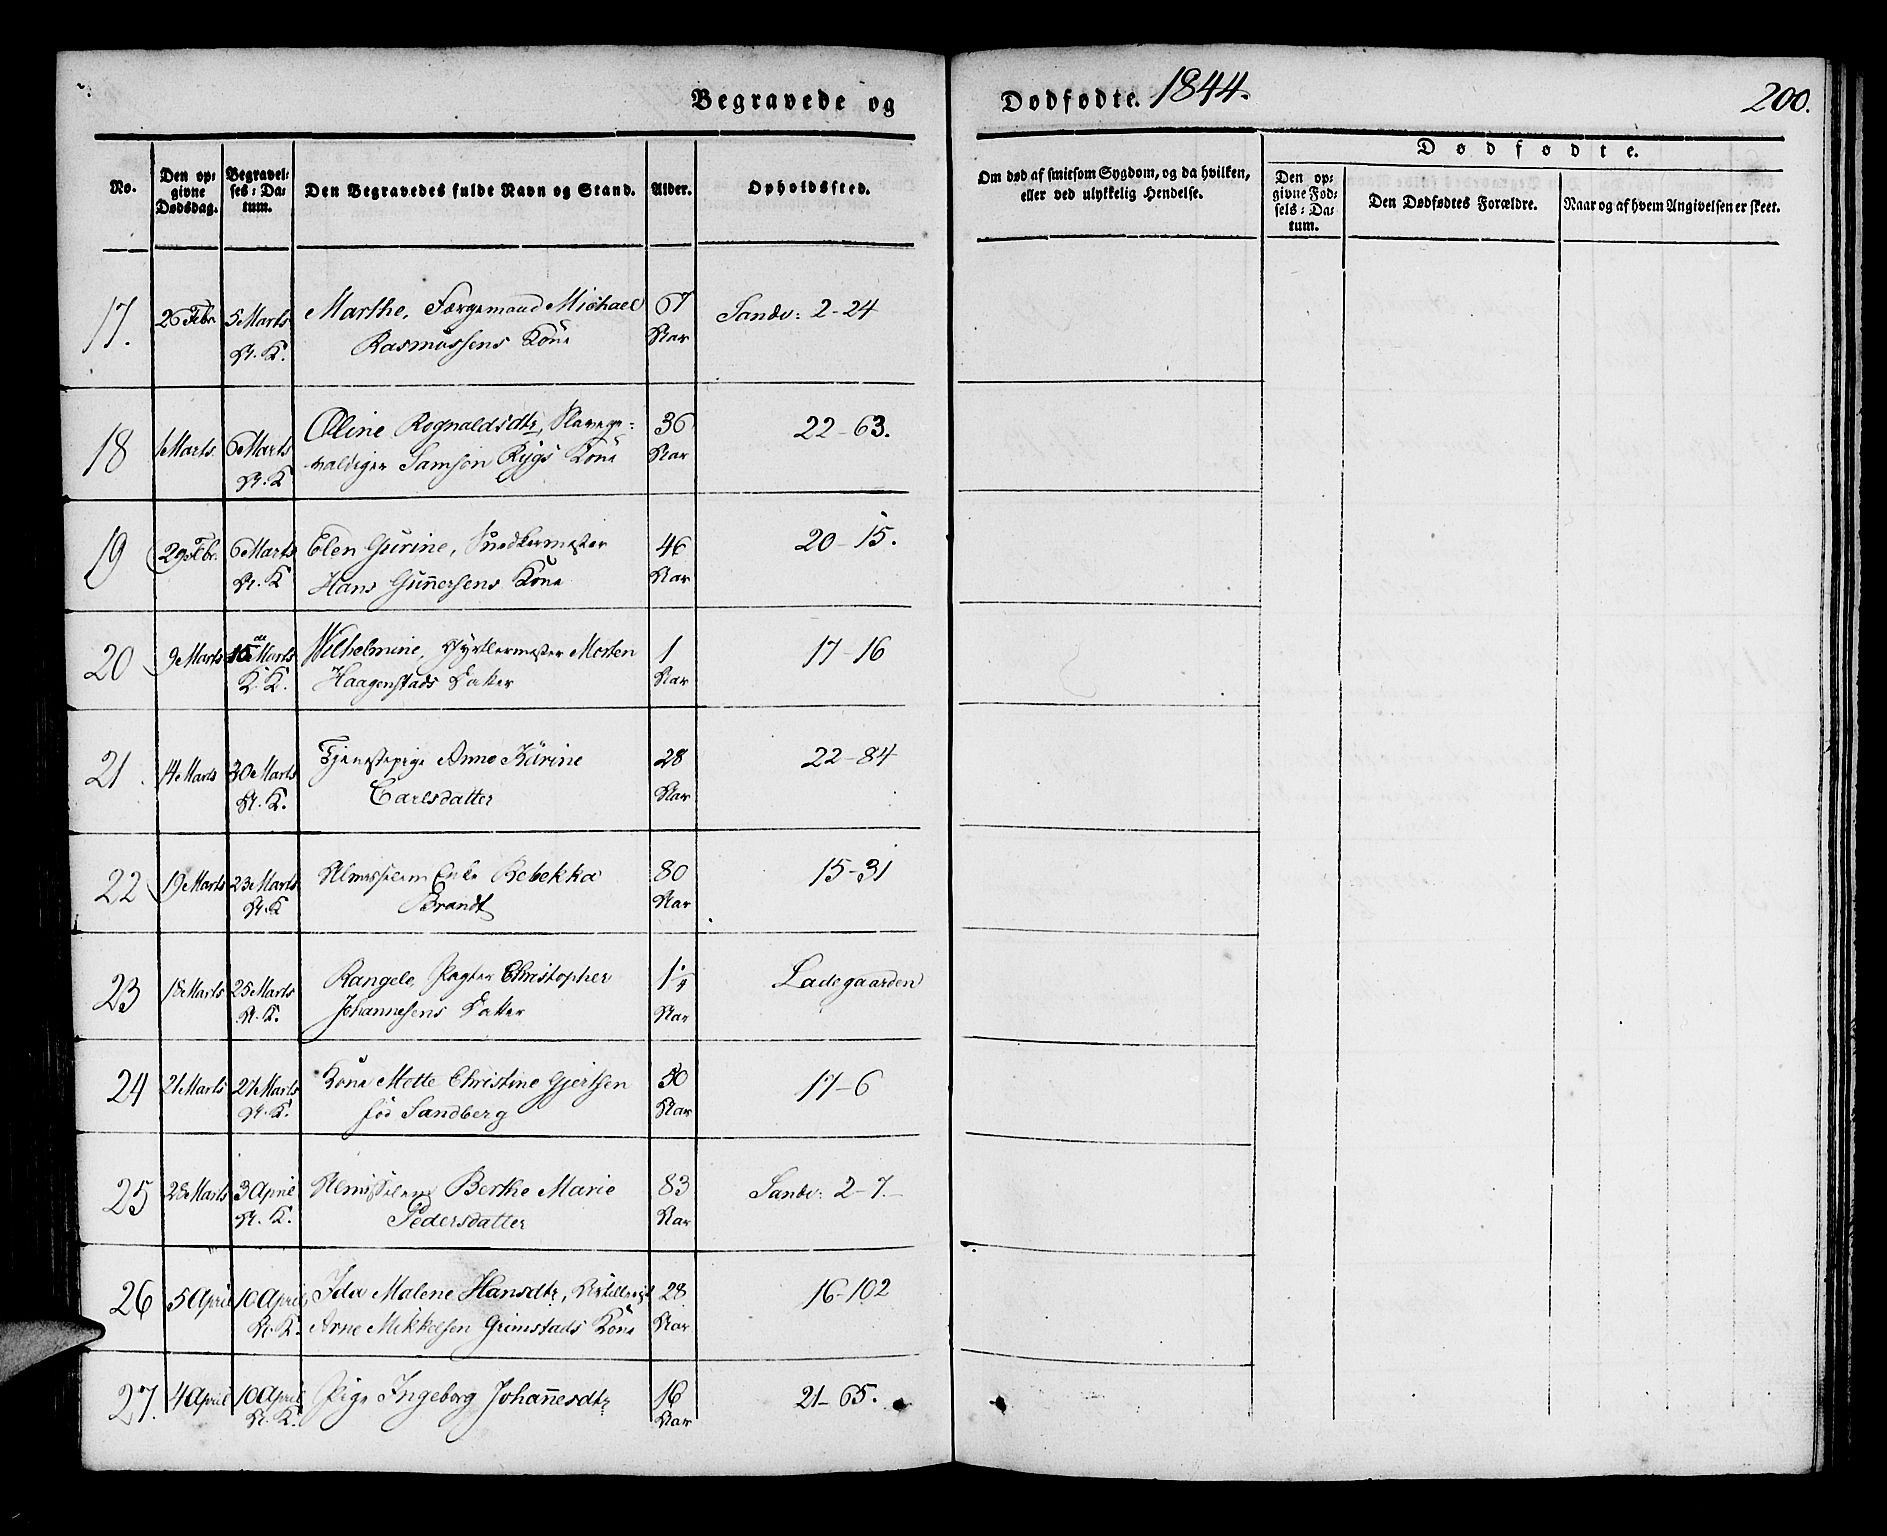 Begravede og Dødfødte. 1844. 200.
No.
Den op-
givne
Dødsdag.
Begravel-
ses-Da-
tum.
Den Begravedes fulde Navn og Stand.
Alder.
Opholdssted.
Om død af smitsom Sygdom, og da hvilken,
eller ved ulykkelig Hendelse.
Dødfødte.
Den op-
givne Fød-
sels-Da-
tum.
Den Dødfødtes Forældre.
Naar og af hvem Angivelsen er skeet.
17. 26 Febr. 5 Marts Marthe, Færgemand Michael 67 Sandv: 2-24
A. K. Rasmussens Kone Aar
18 1 Marts 6 Marts Oline Rognaldsdtr, Slavege- 36 22-63.
A. K valdiger Samson Rygs Kone Aar
19 29 Febr. 6 Marts Elen Gurine, Snedkermester 46 20-15.
A. K Hans Gun̄ersens Kone Aar
20 9 Marts 15 Marts Wilhelmine, Gjørtlermester Morten 1 17-16
K. K. Haagenstads Datter Aar
21. 14 Marts 20 Marts Tjenestepige Anne Karine 28 22-84
A. K. Carlsdatter Aar
22 19 Marts 23 Marts Almisselem Enke Rebekka 80 15-31
A. K Brandt Aar
23 18 Marts 25 Marts Rangele, Pagter Christopher 1 1/4 Ladegaarden
A. K. Johannesens Datter Aar
24 21 Marts 27 Marts Kone Mette Christine Gjertsen 50 17-6
A. K. fød Sandberg Aar
25 28 Marts 3 April Almisselem Berthe Marie 83 Sandv: 2-7.
A. K. Pedersdatter Aar
26 5 April 10 April Ida Malene Hansdtr, 28 16-102
A. K. Arne Mikkelsen Grimstads Kone Aar
27. 4 April 10 April Pige Ingeborg Johan̄esdtr 16 21-65.
A. K. Aar